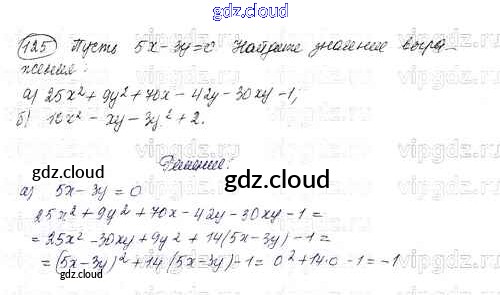 gdz.cloud
125 Пусть 5x-3y=0 Найдите значение выра-
жения:
а) 25x²+9y²+70x-42y-30xy-1,
б) 10x²-xy-3y²+2.
Решение:
gdz.cloud
а) 5x-3y=0
25x²+9y²+70x-42y-30xy-1=
=25x²-30xy+9y²+14(5x-3y)-1=
=(5x-3y)²+14(5x-3y)-1=0²+14·0-1=-1
gdz.cloud